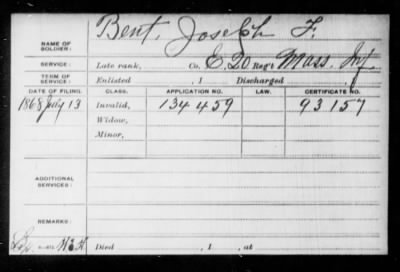 Bent, Joseph F.
NAME OF SOLDIER:
SERVICE: Late rank, Co. E, 20 Reg't Mass. Inf.
TERM OF SERVICE: Enlisted , 1 Discharged , 1
DATE OF FILING. CLASS. APPLICATION NO. LAW. CERTIFICATE NO.
1868 July 13 Invalid, 134 459 93157
Widow,
Minor,
ADDITIONAL SERVICES:
REMARKS:
Died , 1 , at